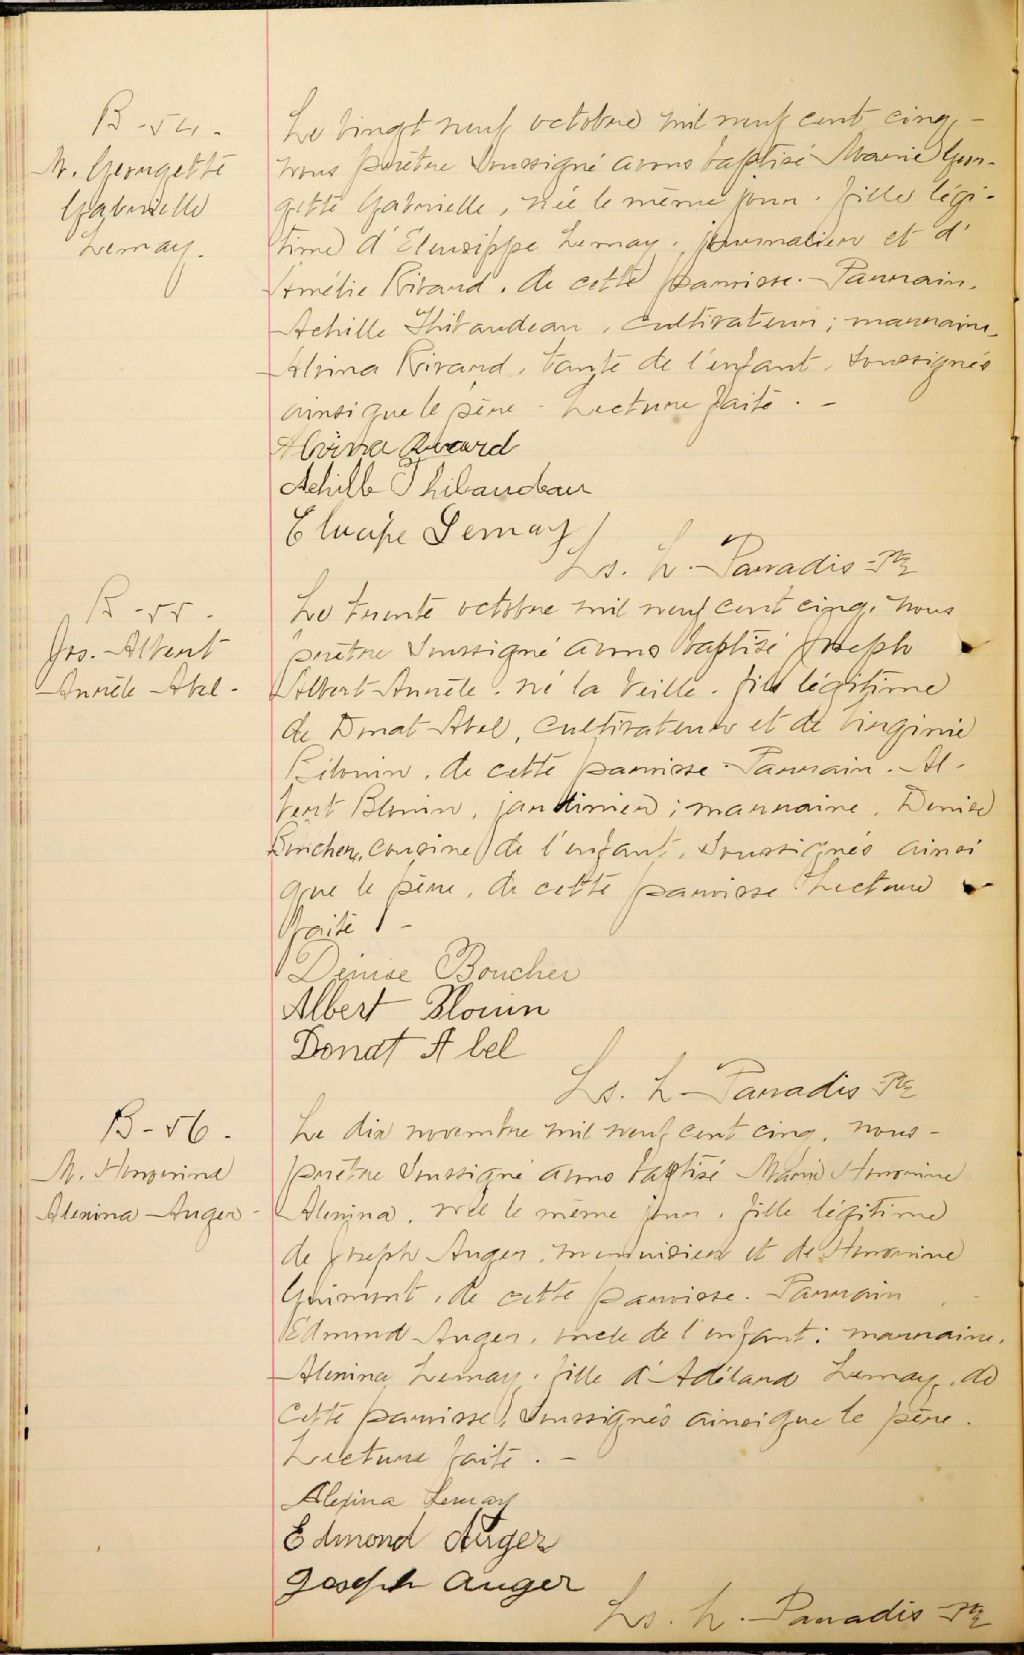 B-54.
M. Georgette
Gabrielle
Lemay.
Le vingt neuf octobre mil neuf cent cinq, -
nous prêtre soussigné avons baptisé Marie Geor-
gette Gabrielle, née le même jour, fille légi-
time d'Eleusippe Lemay, journalier et d'
Amélie Rivard, de cette paroisse. Parrain,
Achille Thibaudeau, cultivateur; marraine,
Alvina Rivard, tante de l'enfant, soussignés
ainsi que le père. Lecture faite. -
Alvina Rivard
Achille Thibaudeau
Elucipe Lemay
Ls. L. Paradis Ptre
B-55.
Jos. Albert
Annèle Abel.
Le trente octobre mil neuf cent cinq, nous
prêtre soussigné avons baptisé Joseph
Albert Annèle, né la veille, fils légitime
de Donat Abel, cultivateur et de Virginie
de cette paroisse. Parrain, Al-
bert Blouin, jardinier; marraine, Denise
Boucher, cousine de l'enfant, soussignés ainsi
que le père, de cette paroisse. Lecture
faite. -
Denise Boucher
Albert Blouin
Donat Abel
Ls. L. Paradis Ptre
B-56.
M. Honorine
Alexina Auger.
Le dix novembre mil neuf cent cinq, nous
prêtre soussigné avons baptisé Marie Honorine
Alexina, née le même jour, fille légitime
de Joseph Auger, menuisier et de Honorine
Guimont, de cette paroisse. Parrain
Edmond Auger, oncle de l'enfant; marraine,
Alexina Lemay, fille d'Adélard Lemay, de
cette paroisse, soussignés ainsi que le père.
Lecture faite. -
Alexina Lemay
Edmond Auger
Joseph Auger
Ls. L. Paradis Ptre